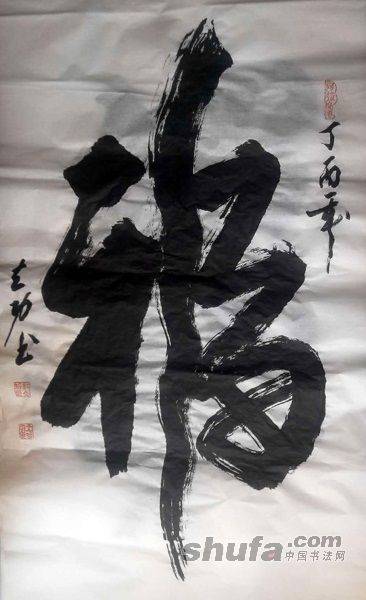 丁酉年
福
功书
shufa.com
中国书法网